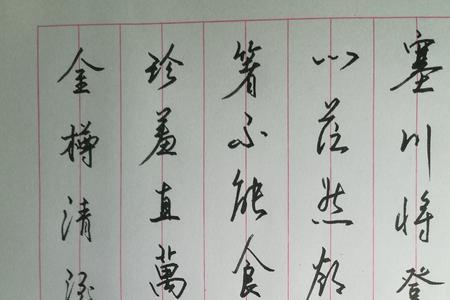 金樽清酒
珍羞直萬
箸不能食
心茫然欲
塞川將登